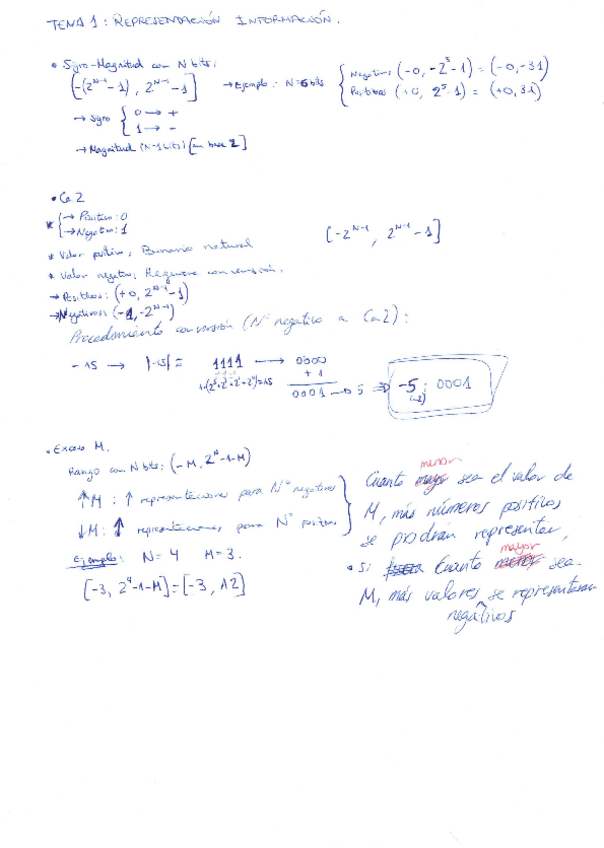 TEMA 1: REPRESENTACIÓN INFORMACIÓN.
• Signo-Magnitud con N bits:
[-(2^(N-1) - 1), 2^(N-1) - 1] → Ejemplo: N=6 bits { Negativos (-0, -2^5 - 1) = (-0, -31)
Positivos (+0, 2^5 - 1) = (+0, 31)
→ Signo { 0 → +
1 → -
→ Magnitud (N-1 bits) [en base 2]
• Ca 2
* { → Positivo: 0
→ Negativo: 1
[-2^(N-1), 2^(N-1) - 1]
* Valor positivo, Binario natural
* Valor negativo; Requiere conversión.
→ Positivos: (+0, 2^(N-1) - 1)
→ Negativos (-1, -2^(N-1))
Procedimiento conversión (Nº negativo a Ca2):
-15 → |-15| = 1111 → 0000
+ 1
0001 → 5 ⇒ -5 (Ca2): 0001
• Exceso M.
Rango con N bits: (-M, 2^N - 1 - M)
↑M: ↑ representaciones para Nº negativos
↓M: ↑ representaciones para Nº positivos
Ejemplo: N = 4 M = 3.
[-3, 2^4 - 1 - M] = [-3, 12]
menor
Cuanto mayor sea el valor de
M, más números positivos
se podran representar,
mayor
• Si Cuanto menor sea
M, más valores se representaran
negativos